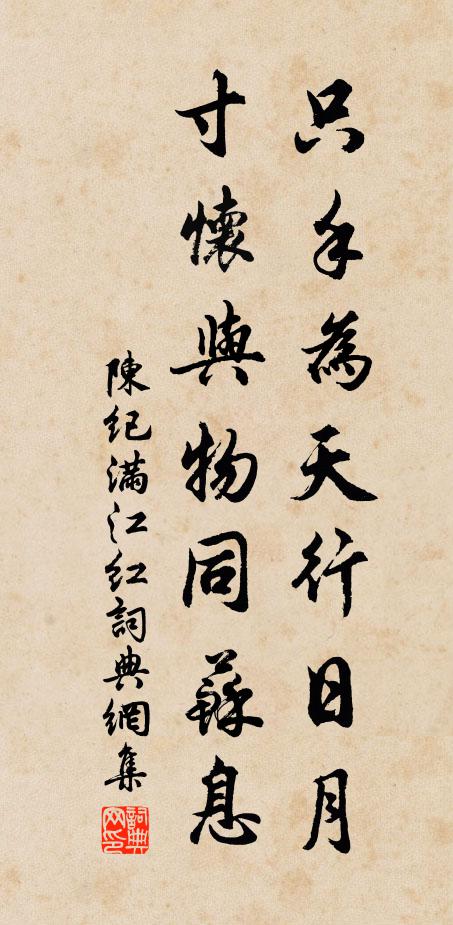 只手為天行日月
寸懷與物同蘇息
陳紀滿江紅詞典網集
詞典網印